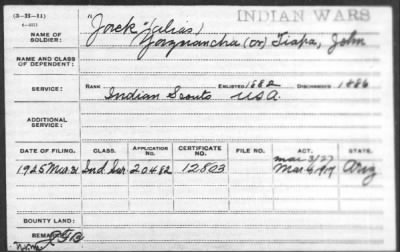 (3-22-11)
INDIAN WARS
"Jack" (alias)
NAME OF SOLDIER: (or) Tiapa, John
NAME AND CLASS OF DEPENDENT:
SERVICE: RANK ENLISTED 1882 DISCHARGED 1886
Indian Scouts USA
ADDITIONAL SERVICE:
DATE OF FILING. CLASS. APPLICATION NO. CERTIFICATE NO. FILE NO. ACT. STATE.
Mar 3/27
1925 Mar. Ind Sur. 20482 12803 Mar 4, 1917 Ariz
BOUNTY LAND:
REMARKS: